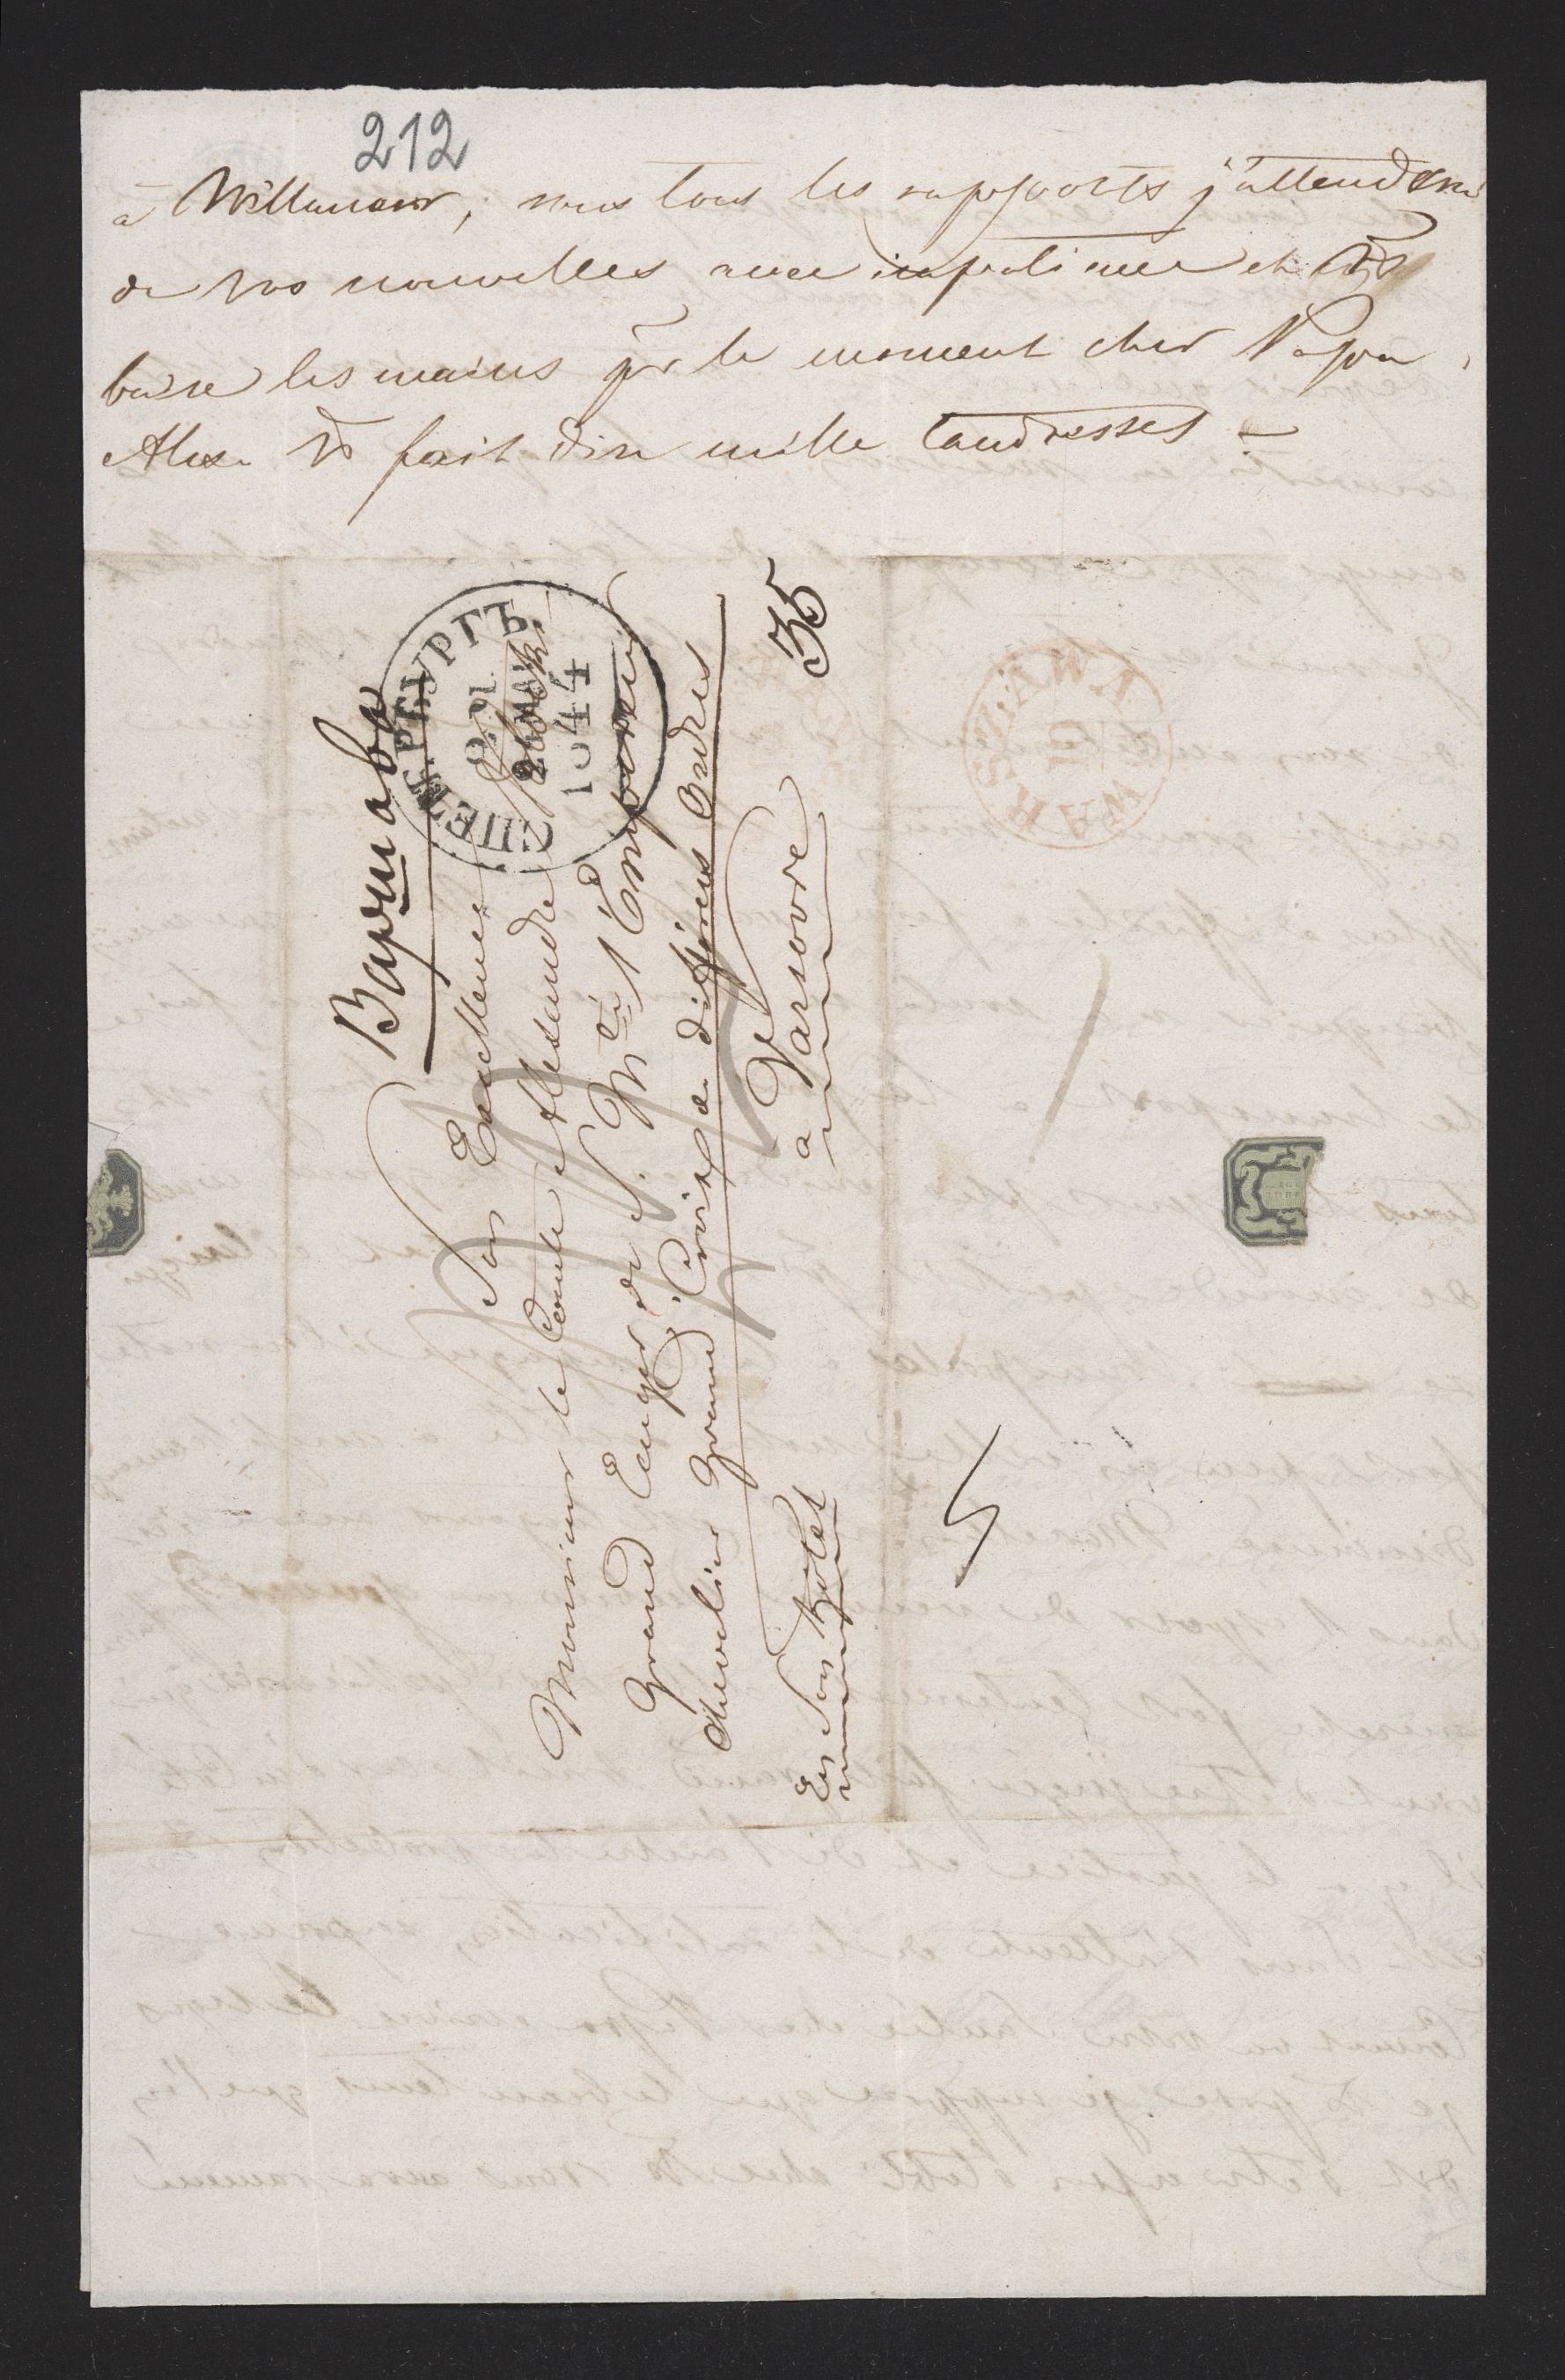 212
à Willanow, sous tous les rapports j'attendrai
de vos nouvelles avec impatience et Vs
baise les mains pr le moment cher Papa,
Alex. Vs fait dire mille tandresses –
Варшава
С.ПЕТЕРБУРГЪ
1844
Son Excellence
Monsieur le Comte Alexandre Potocki
Grand Ecuyer de S. Mté l'Empereur
Chevalier Grand Croix de différens Ordres
à Varsovie
En Son Hotel
35
WARSZAWA
10